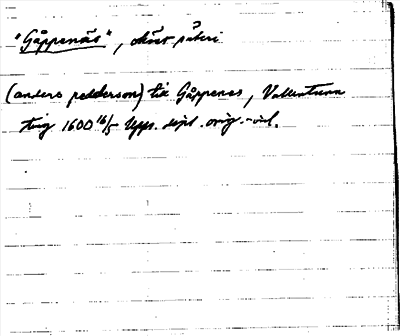 "Gåppenäs", säteri
(anders pedderson) till Gåppenes, Vallentuna
ting 1600 16/5 Upps. dipl. orig. -